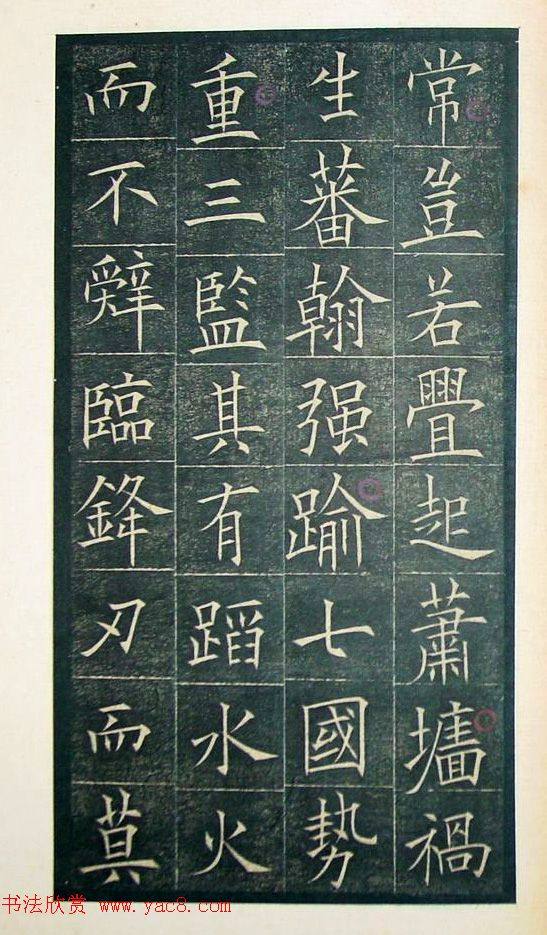 常豈若舋起蕭墻禍
生蕃翰强踰七國勢
重三監其有蹈水火
而不辤臨鋒刃而莫
书法欣赏 www.yac8.com